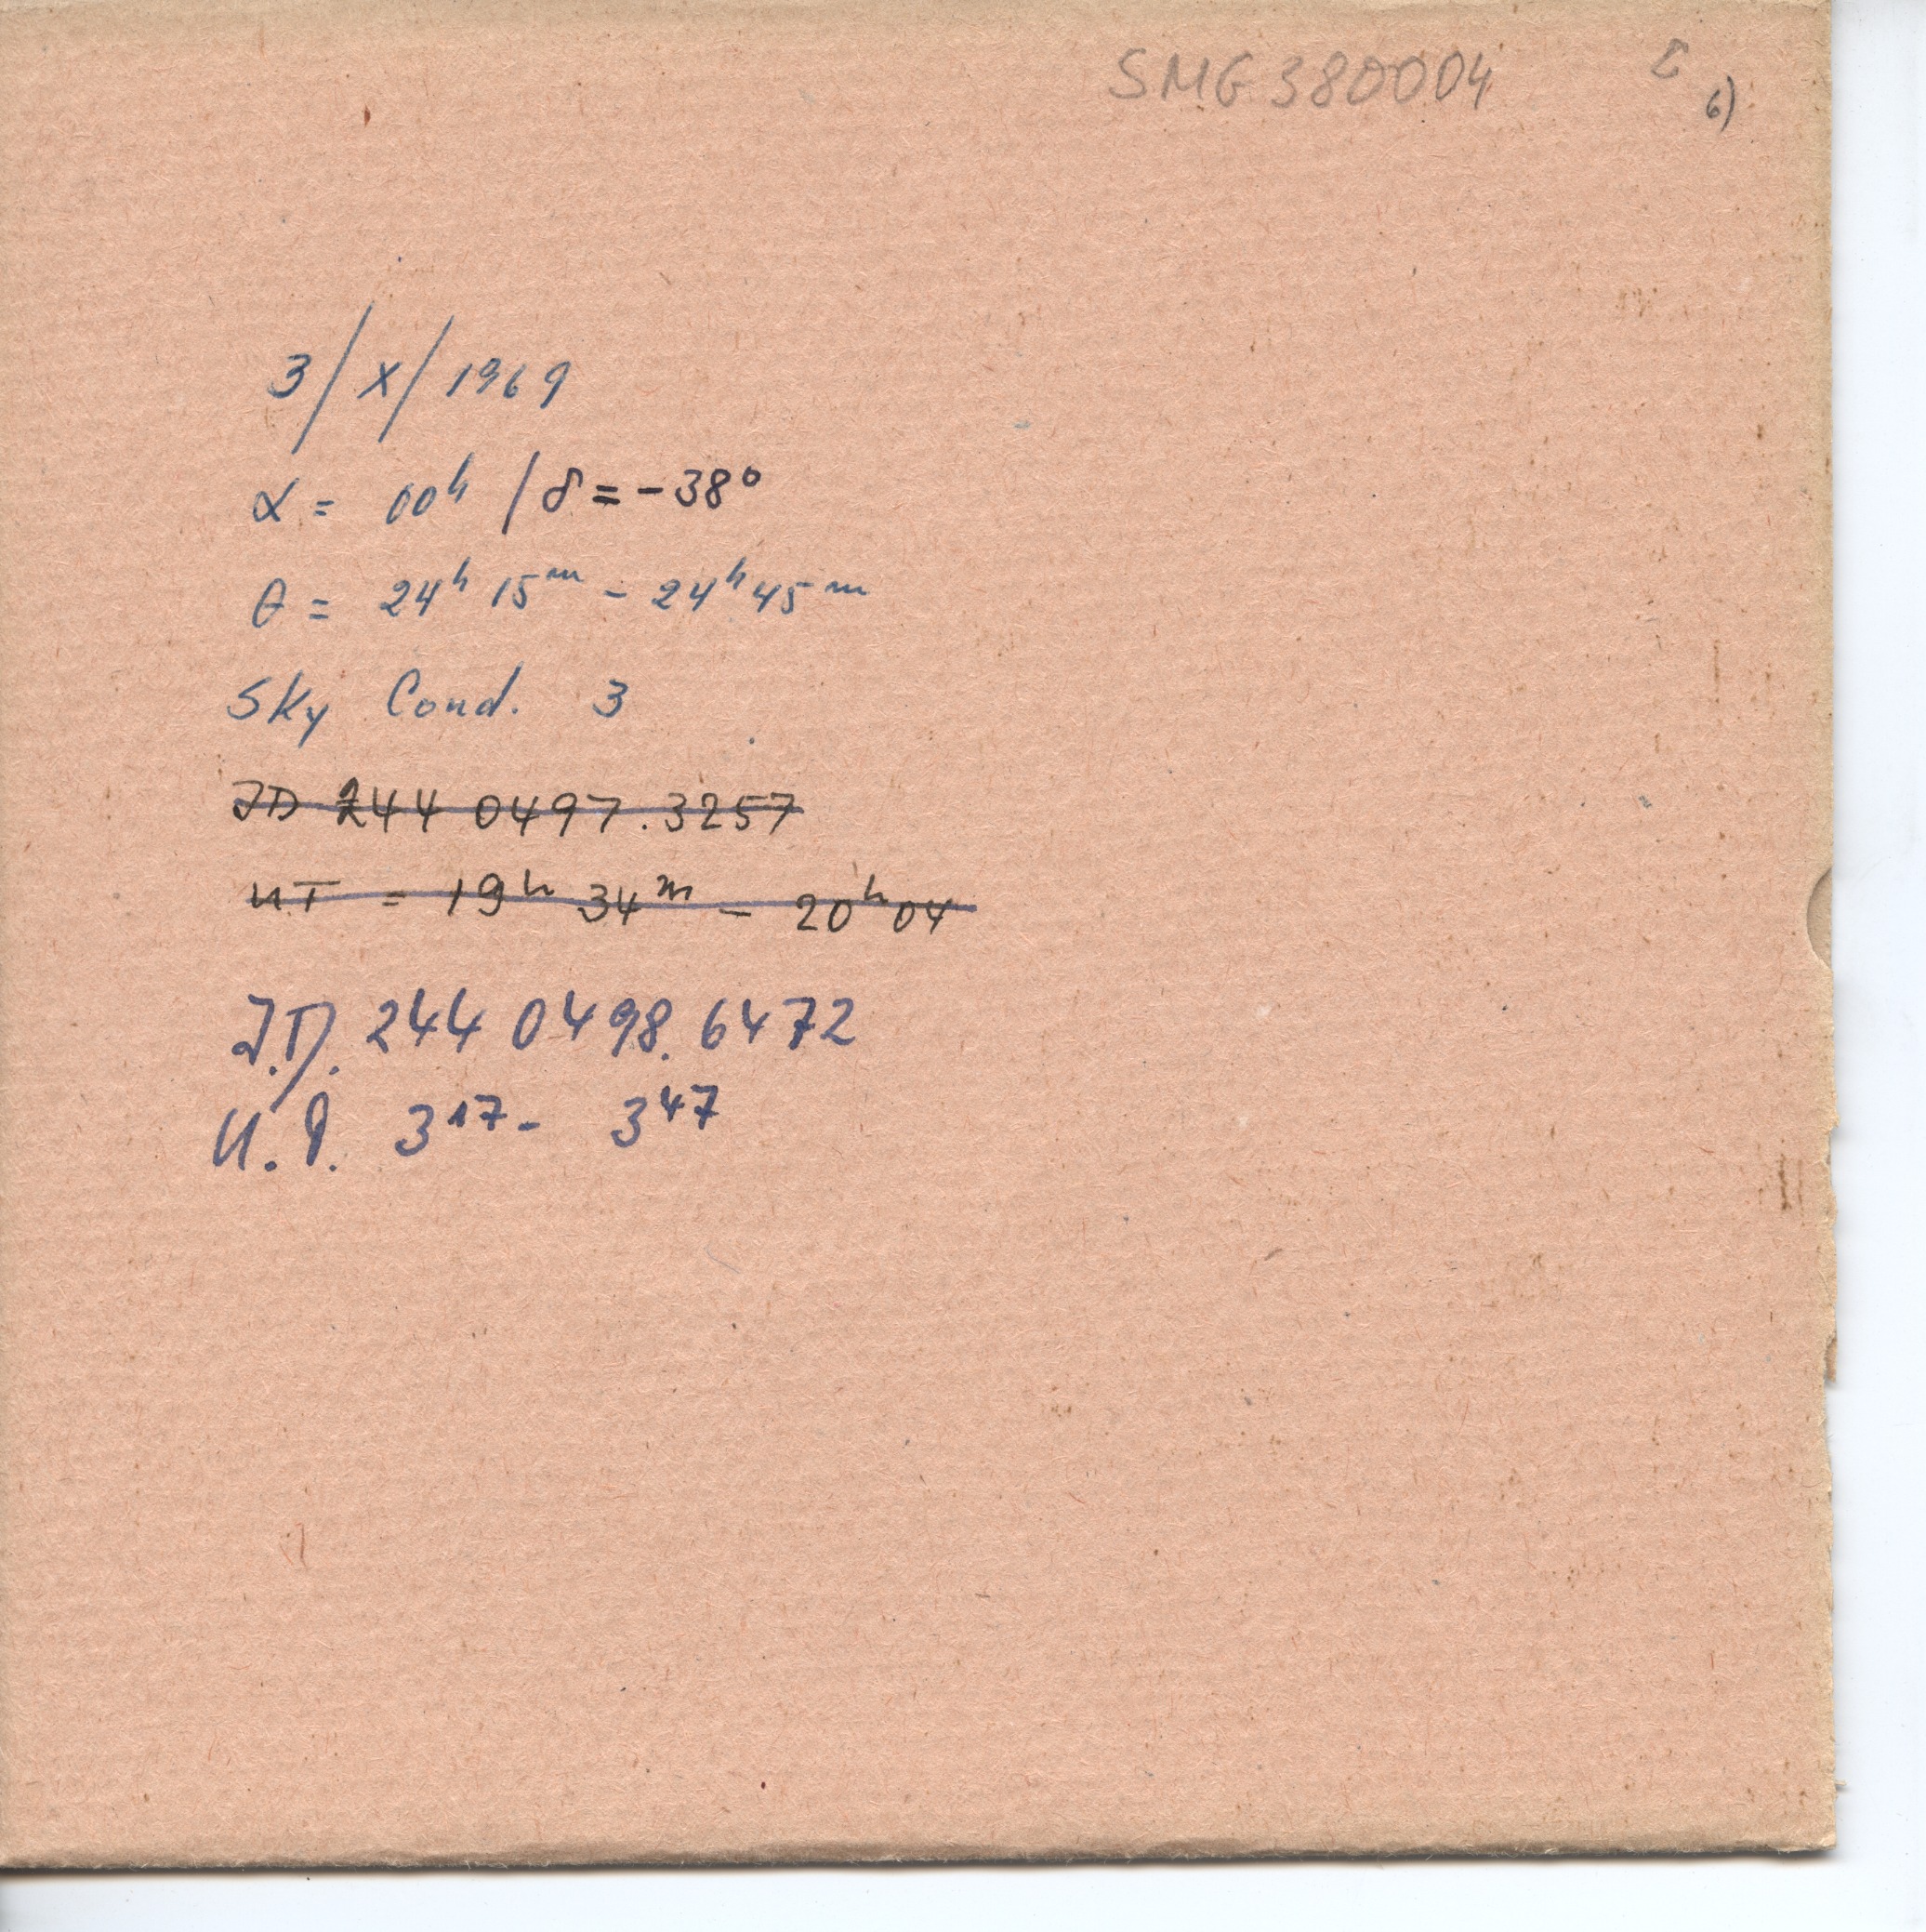 SMG 380004
6)
3/X/1969
α = 00ʰ / δ = -38°
θ = 24ʰ 15ᵐ - 24ʰ 45ᵐ
Sky Cond. 3
JD 244 0497.3257
UT = 19ʰ 34ᵐ - 20ʰ 04
J.D. 244 0498.6472
U.T. 3¹⁷ - 3⁴⁷